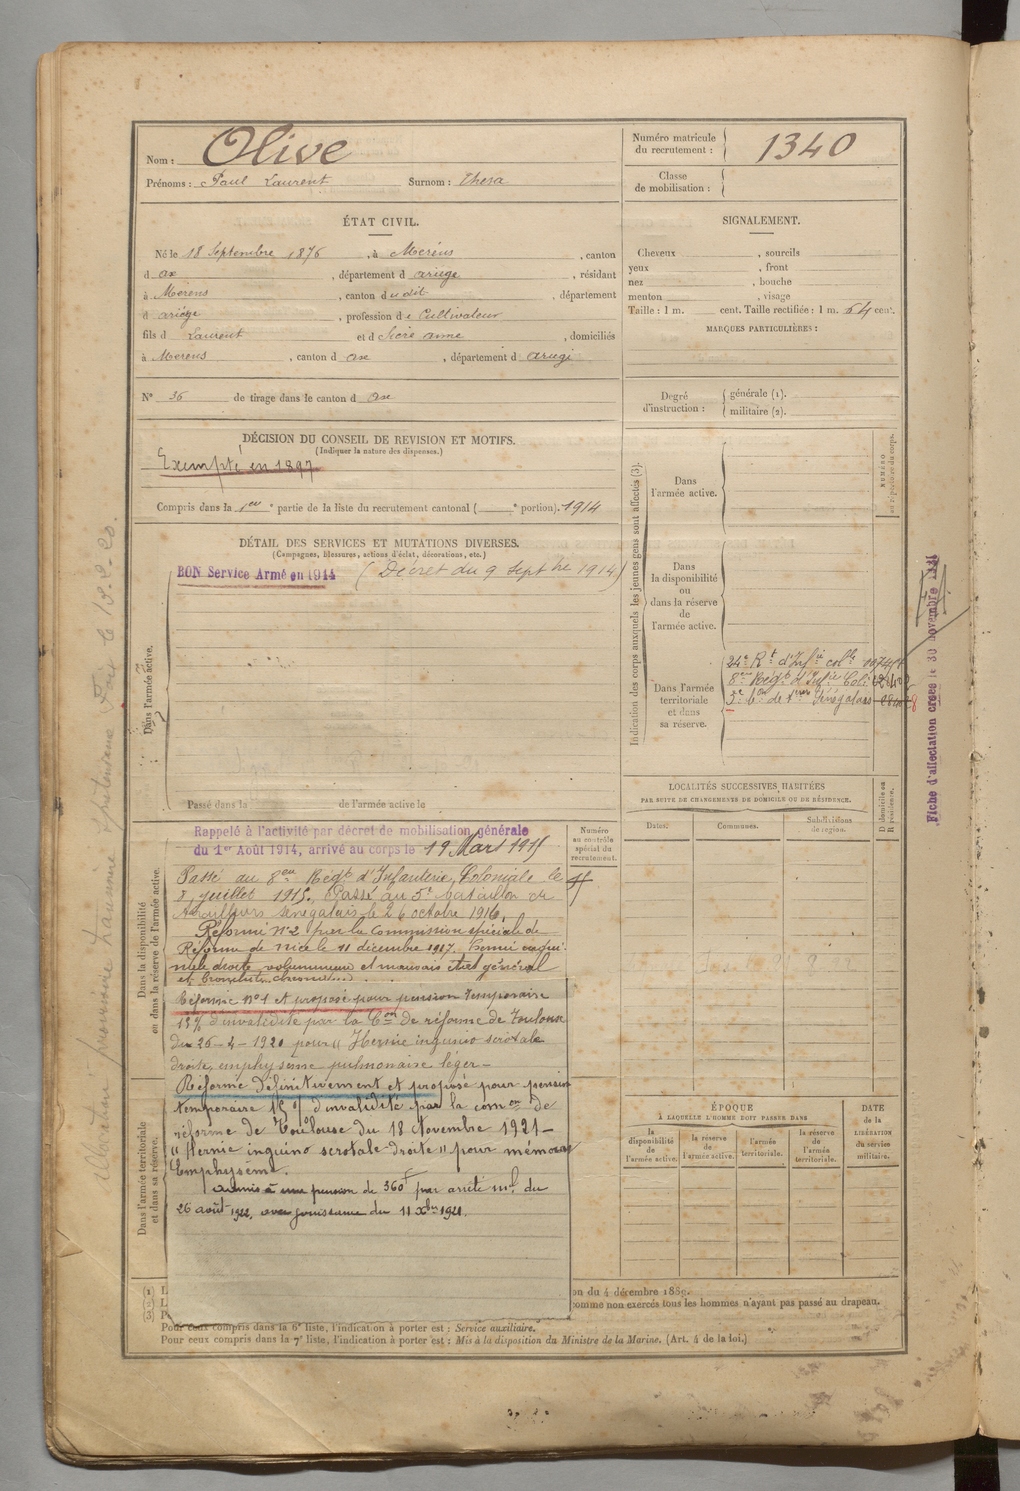 Nom : Olive
Prénoms : Paul Laurent Surnom : Thesa
Numéro matricule du recrutement : 1340
Classe de mobilisation :
ÉTAT CIVIL.
Né le 18 Septembre 1876, à Merens, canton
d ax, département d ariège, résidant
à Mérens, canton dudit, département
d ariège, profession de Cultivateur
fils d Laurent et d Sicre anne, domiciliés
à Merens, canton d ax, département d ariege
N° 36 de tirage dans le canton d ax
SIGNALEMENT.
Cheveux , sourcils
yeux , front
nez , bouche
menton , visage
Taille : 1 m. cent. Taille rectifiée : 1 m. 64 cent.
MARQUES PARTICULIÈRES :
Degré d'instruction : générale (1).
militaire (2).
DÉCISION DU CONSEIL DE REVISION ET MOTIFS.
(Indiquer la nature des dispenses.)
Exempté en 1897
Compris dans la 1ere partie de la liste du recrutement cantonal ( e portion). 1914
DÉTAIL DES SERVICES ET MUTATIONS DIVERSES.
(Campagnes, blessures, actions d'éclat, décorations, etc.)
BON Service Armé en 1914 (Décret du 9 Septbre 1914)
Dans l'armée active.
Passé dans la de l'armée active le
Indication des corps auxquels les jeunes gens sont affectés (3).
NUMÉRO au répertoire du corps.
Dans l'armée active.
Dans la disponibilité ou dans la réserve de l'armée active.
Dans l'armée territoriale et dans sa réserve.
24e Rt d'Infie colle
8me Regt d'Infie Coli
5e bon de tirrs Sénégalais
Fiche d'affectation créée le 30 novembre
Dans la disponibilité ou dans la réserve de l'armée active.
Rappelé à l'activité par décret de mobilisation générale
du 1er Août 1914, arrivé au corps le 19 Mars 1915
Numéro au contrôle spécial du recrutement.
Passé au 8me Régt d'Infanterie Coloniale le
juillet 1915. Passé au 5e bataillon de
tirailleurs sénégalais le 26 octobre 1916.
Réformé n°2 par la Commission spéciale de
Réforme de Nice le 11 décembre 1917. Hernie ingui-
nale droite volumineuse et mauvais état général
et bronchite
Réformé n°1 et proposé pour pension temporaire
15% d'invalidité par la Con de réforme de Toulouse
du 26-4-1920 pour "Hernie inguino scrotale
droite, emphysème pulmonaire léger -
Réformé définitivement et proposé pour pension
temporaire 15% d'invalidité par la comon de
réforme de Toulouse du 18 Novembre 1921 -
"Hernie inguino scrotale droite" pour mémoire
Emphysème.
admis à une pension de 360f par arrêté ml. du
26 août 1922, avec jouissance du 11 Xbre 1921.
Dans l'armée territoriale et dans sa réserve.
LOCALITÉS SUCCESSIVES HABITÉES
PAR SUITE DE CHANGEMENTS DE DOMICILE OU DE RÉSIDENCE.
Dates. Communes. Subdivisions de région. D domicile ou R résidence.
ÉPOQUE
À LAQUELLE L'HOMME DOIT PASSER DANS
la disponibilité de l'armée active. la réserve de l'armée active. l'armée territoriale. la réserve de l'armée territoriale.
DATE de la LIBÉRATION du service militaire.
on du 4 décembre 1889.
comme non exercés tous les hommes n'ayant pas passé au drapeau.
Pour ceux compris dans la 6e liste, l'indication à porter est : Service auxiliaire.
Pour ceux compris dans la 7e liste, l'indication à porter est : Mis à la disposition du Ministre de la Marine. (Art. 4 de la loi.)